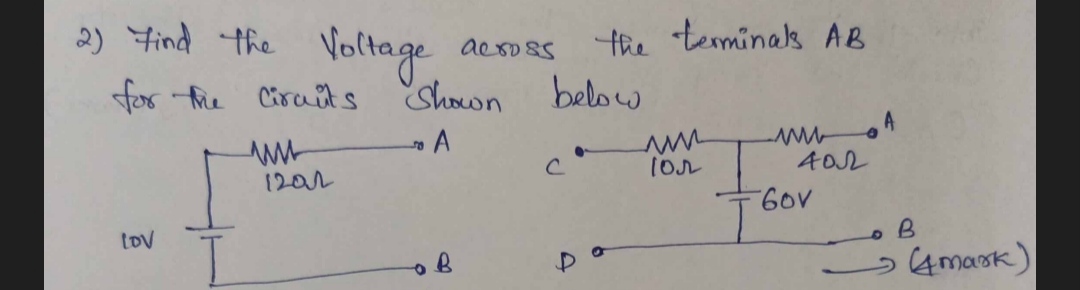 2) Find the Voltage across the terminals AB
for the Circuits Shown below
A
120Ω
10V
B
C
10Ω
40Ω
A
60V
D
B
→ (4mark)